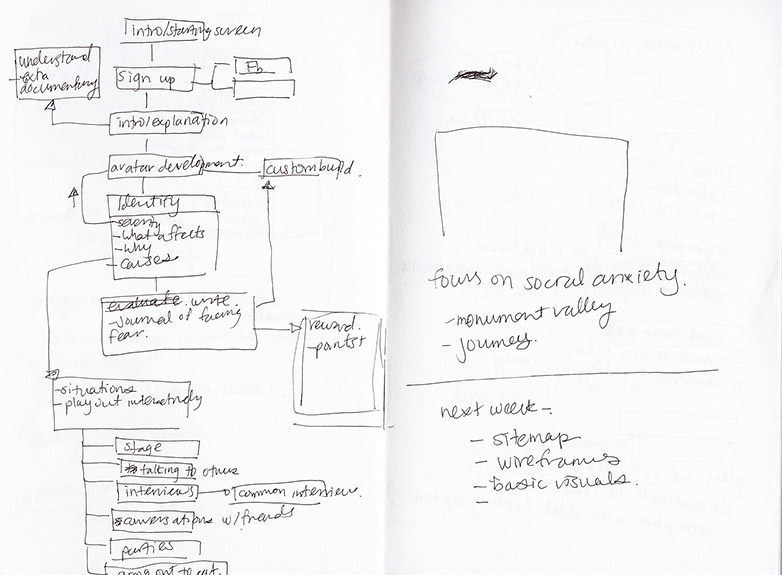 intro/starting screen
understand
-extra
documentary
sign up
Fb
intro/explanation
avatar development.
custom build.
Identify
-severity
-what affects
-why
-causes
evaluate. write.
-Journal of facing
fear.
reward.
-situations
-play out
stage
talking to others
interviews
common interview.
conversations w/friends
parties
going out to eat.
focus on social anxiety.
-monument valley
-journey.
next week-
- sitemap
- wireframes
- basic visuals.
-